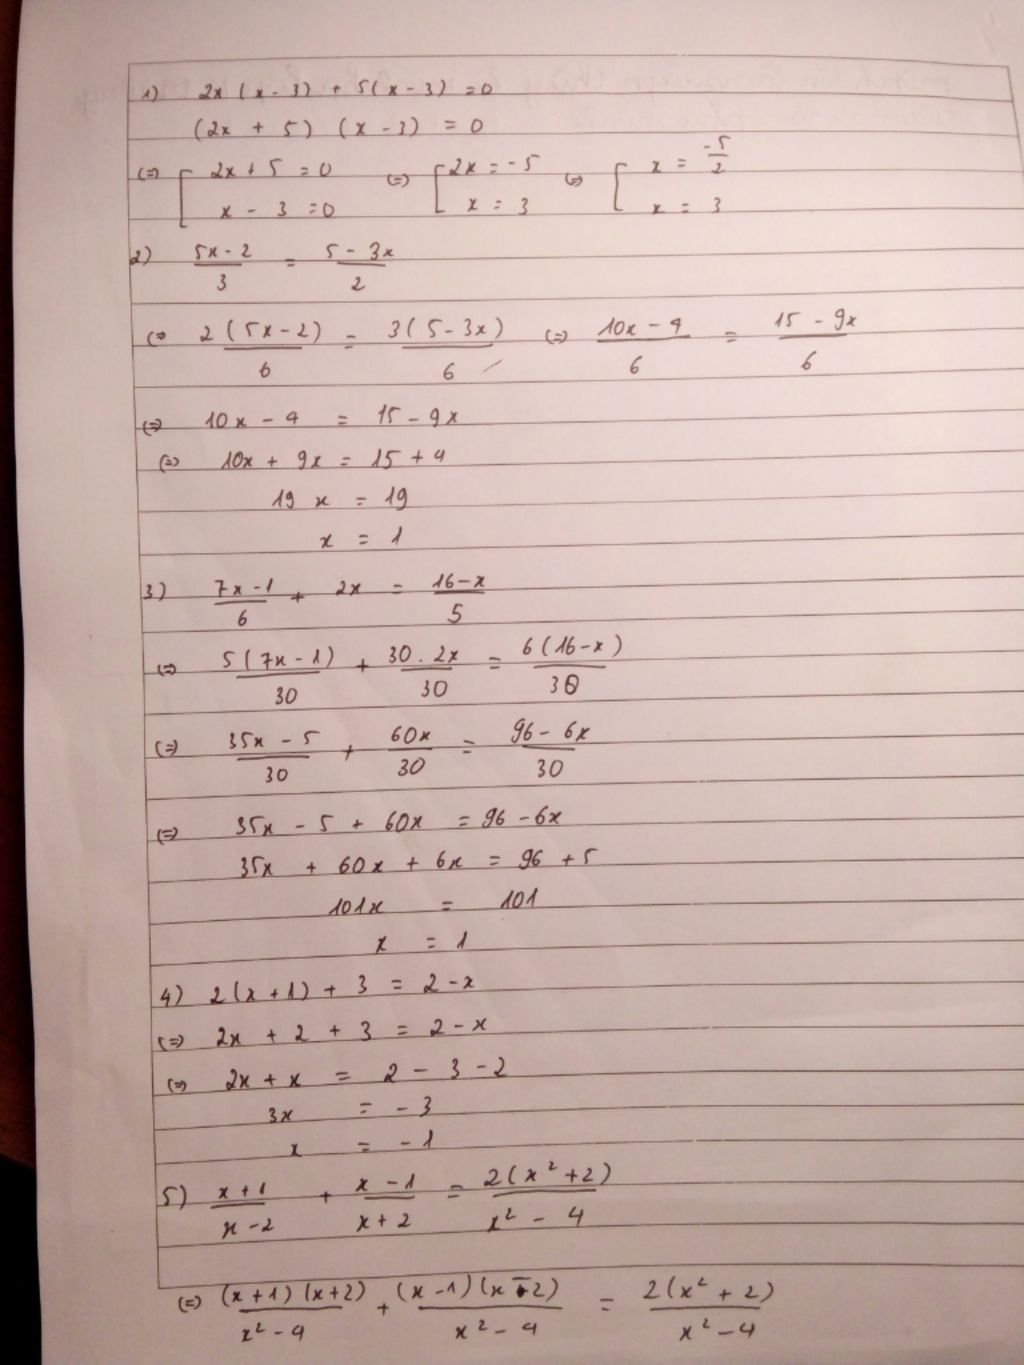 1) 2x(x-3) + 5(x-3) = 0
(2x + 5) (x - 3) = 0
(=) [ 2x + 5 = 0 (=) [ 2x = -5 (=) [ x = -5/2
x - 3 = 0 x = 3 x = 3
2) (5x-2)/3 = (5-3x)/2
(=) 2(5x-2)/6 = 3(5-3x)/6 (=) (10x-4)/6 = (15-9x)/6
(=) 10x - 4 = 15 - 9x
(=) 10x + 9x = 15 + 4
19x = 19
x = 1
3) (7x-1)/6 + 2x = (16-x)/5
(=) 5(7x-1)/30 + 30.2x/30 = 6(16-x)/30
(=) (35x-5)/30 + 60x/30 = (96-6x)/30
(=) 35x - 5 + 60x = 96 - 6x
35x + 60x + 6x = 96 + 5
101x = 101
x = 1
4) 2(x+1) + 3 = 2-x
(=) 2x + 2 + 3 = 2-x
(=) 2x + x = 2 - 3 - 2
3x = -3
x = -1
5) (x+1)/(x-2) + (x-1)/(x+2) = 2(x²+2)/(x²-4)
(=) (x+1)(x+2)/(x²-4) + (x-1)(x-2)/(x²-4) = 2(x²+2)/(x²-4)